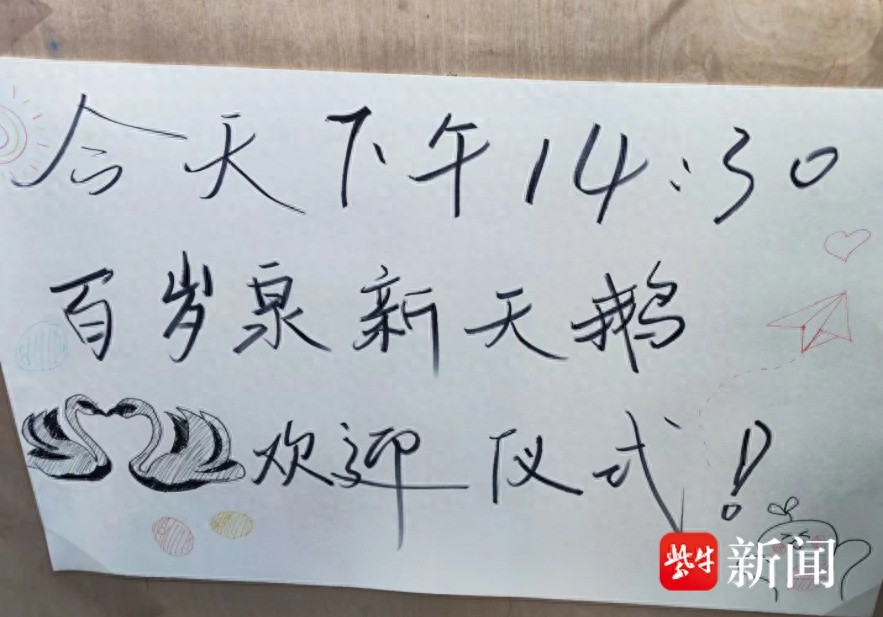 今天下午14:30
百岁泉新天鹅
欢迎仪式!
紫牛新闻